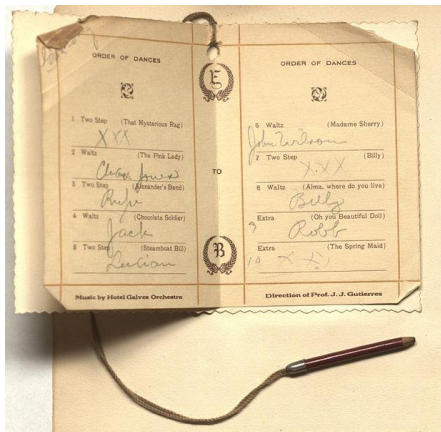 ORDER OF DANCES
1 Two Step (That Mysterious Rag)
XXX
2 Waltz (The Pink Lady)
3 Two Step (Alexander's Band)
Rufe
4 Waltz (Chocolate Soldier)
Jack
5 Two Step (Steamboat Bill)
Lucian
Music by Hotel Galvez Orchestra
E
TO
B
ORDER OF DANCES
6 Waltz (Madame Sherry)
John Wilson
7 Two Step (Billy)
X.X.X
8 Waltz (Alma, where do you live)
Billy
Extra (Oh you Beautiful Doll)
9 Robb
Extra (The Spring Maid)
10 X X
Direction of Prof. J. J. Gutierres